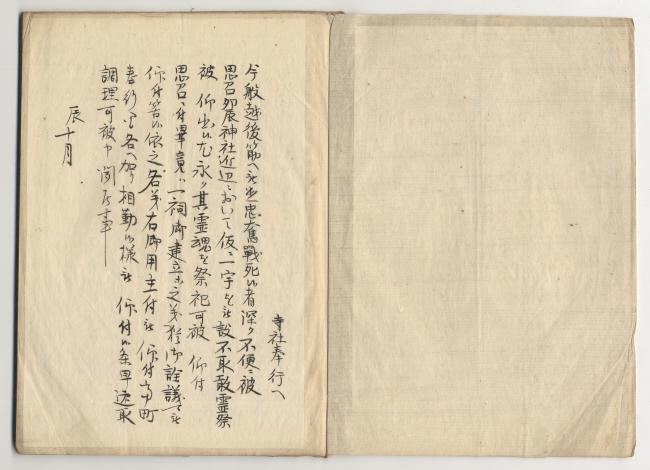 寺社奉行へ
今般越後筋へ出忠奮戦死候者深ク不便ニ被
思召卯辰神社近辺ニおいて仮ニ一宇を被設不取敢霊祭
被 仰出候尤永ク其霊魂を祭祀可被 仰付
思召ニ付畢竟ハ一祠御建立等之義猶御詮議可被
仰付筈候依之各義右御用主付被 仰付町
奉行各へ加り相勤候様被 仰付候条早速取
調理可被申聞候事
辰十月